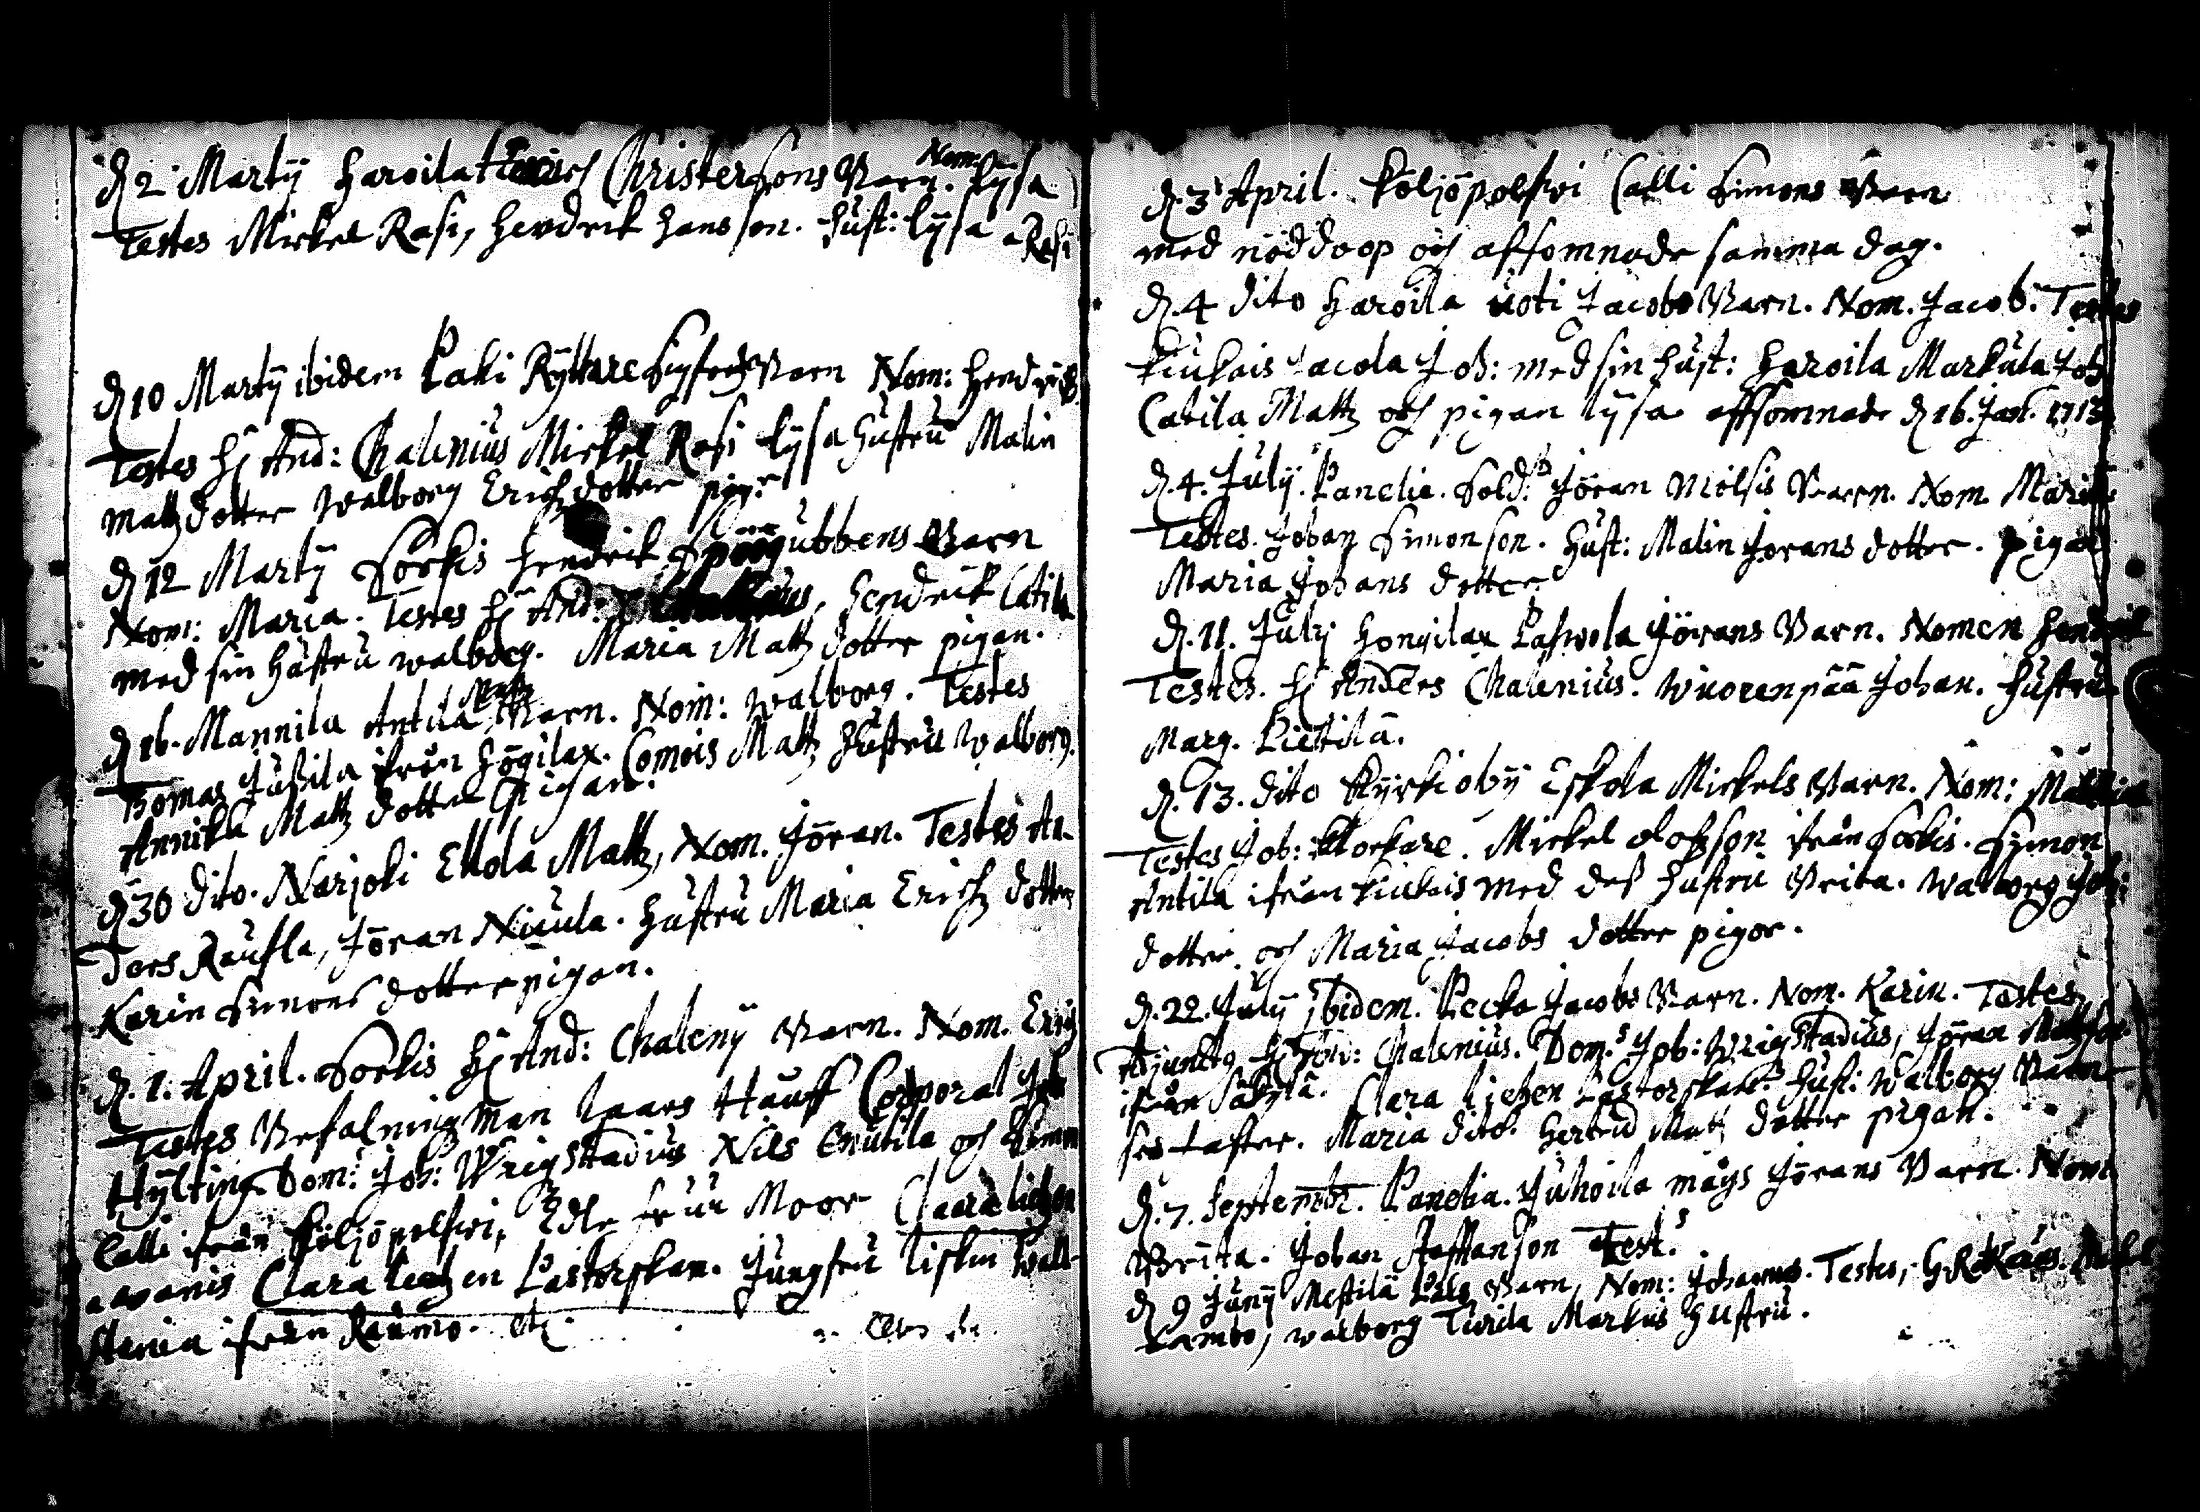 d. 2 Martÿ Haroila Christersons Barn. Nom: Lÿsa
Testes Mickel Rasi, Hendrik Hansson. Hust: Lÿsa Rasi
d. 10 Martÿ ibidem Laki Rÿttare Sigfredz Barn Nom: Hendrich
Testes H. And: Chalenius Mickel Rasi Lÿsa Hustru Malin
Matz dotter Walborg Erichz dotter pig:
d. 12 Martÿ Sorkis Hendrik gubbens Barn
Nom: Maria. Testes H. And: Chalenius, Hendrik Catila
med sin Hustru Walborg. Maria Matz dotter pigan.
d. 16. Mannila Antila Matz Barn. Nom: Walborg. Testes
Tomas Jussila ifrån Högilax. Comois Matz Hustru Walborg.
Annika Matz dotter Pigan.
d. 30 dito. Narjoki Ellola Matz, Nom. Jöran. Testes An-
ders Raukla, Jöran Niuula. Hustru Maria Erichz dotter
Karin Simons dotter pigan.
d. 1. April. Sorkis H. And: Chalenÿ Barn. Nom. Erich
Testes Befalningzman Laars Hauff Corporal Joh
Hÿlting Dom: Joh: Wrigstadius Nils Cnutila och Simon
Calli ifrån Kiöljöpolskvi, Edle Fruu Moor Clara Lietzen
Clara Lietzen Pastorskan. Jungfru Liskin Wall-
ifrån Raumo. etc.
d. 3 April. Köljöpolswi Calli Simons Barn
med nöddoop och afsomnade samma dag.
d. 4 dito Haroila Uoti Jacobs Barn. Nom. Jacob. Testes
Kiukais Jacola Joh: med sin Hust: Haroila Markula Joh
Catila Matz och pigan Lÿsa afsomnade d. 16. Jan. 1713
d. 4. Julÿ. Panelia. Sold: Jöran Mölsis Barn. Nom Maria
Testes. Johan Simonson. Hust: Malin Jörans dotter. Pigan
Maria Johans dotter
d. 11. Julÿ Hongilax Lassvola Jörans Barn. Nomen Hendrik
Testes. H. Anders Chalenius. Wuorenpää Johan. Hustru
Marg. Lietilä.
d. 13. dito Kÿrkiobÿ Eskola Mickels Barn. Nom:
Testes Joh: Klockare. Mickel Olofsson ifrån Sorkis. Symon
Antila ifrån Kiukais med dess Hustru Brita. Walborg Joh:
dotter. och Maria Jacobs dotter pigor.
d. 22. Julÿ ibidem. Pecka Jacobs Barn. Nom. Karin. Testes
Adjuncto H. Chalenius. Dom: Joh: Wrigstadius, Jöran Matzson
ifrån Säkÿlä. Clara Lietzen Pastorskan Hust: Walborg
Maria dito. Gertrud Matz dotter pigan.
d. 7. Septembr. Panelia. Juhoila mågs Jörans Barn. Nom.
Brita. Johan Staffanson Test.
d. 9 Junÿ Mestilä Barn, Nom: Johannes. Testes,
Lambo, Walborg Turila Markus Hustru.